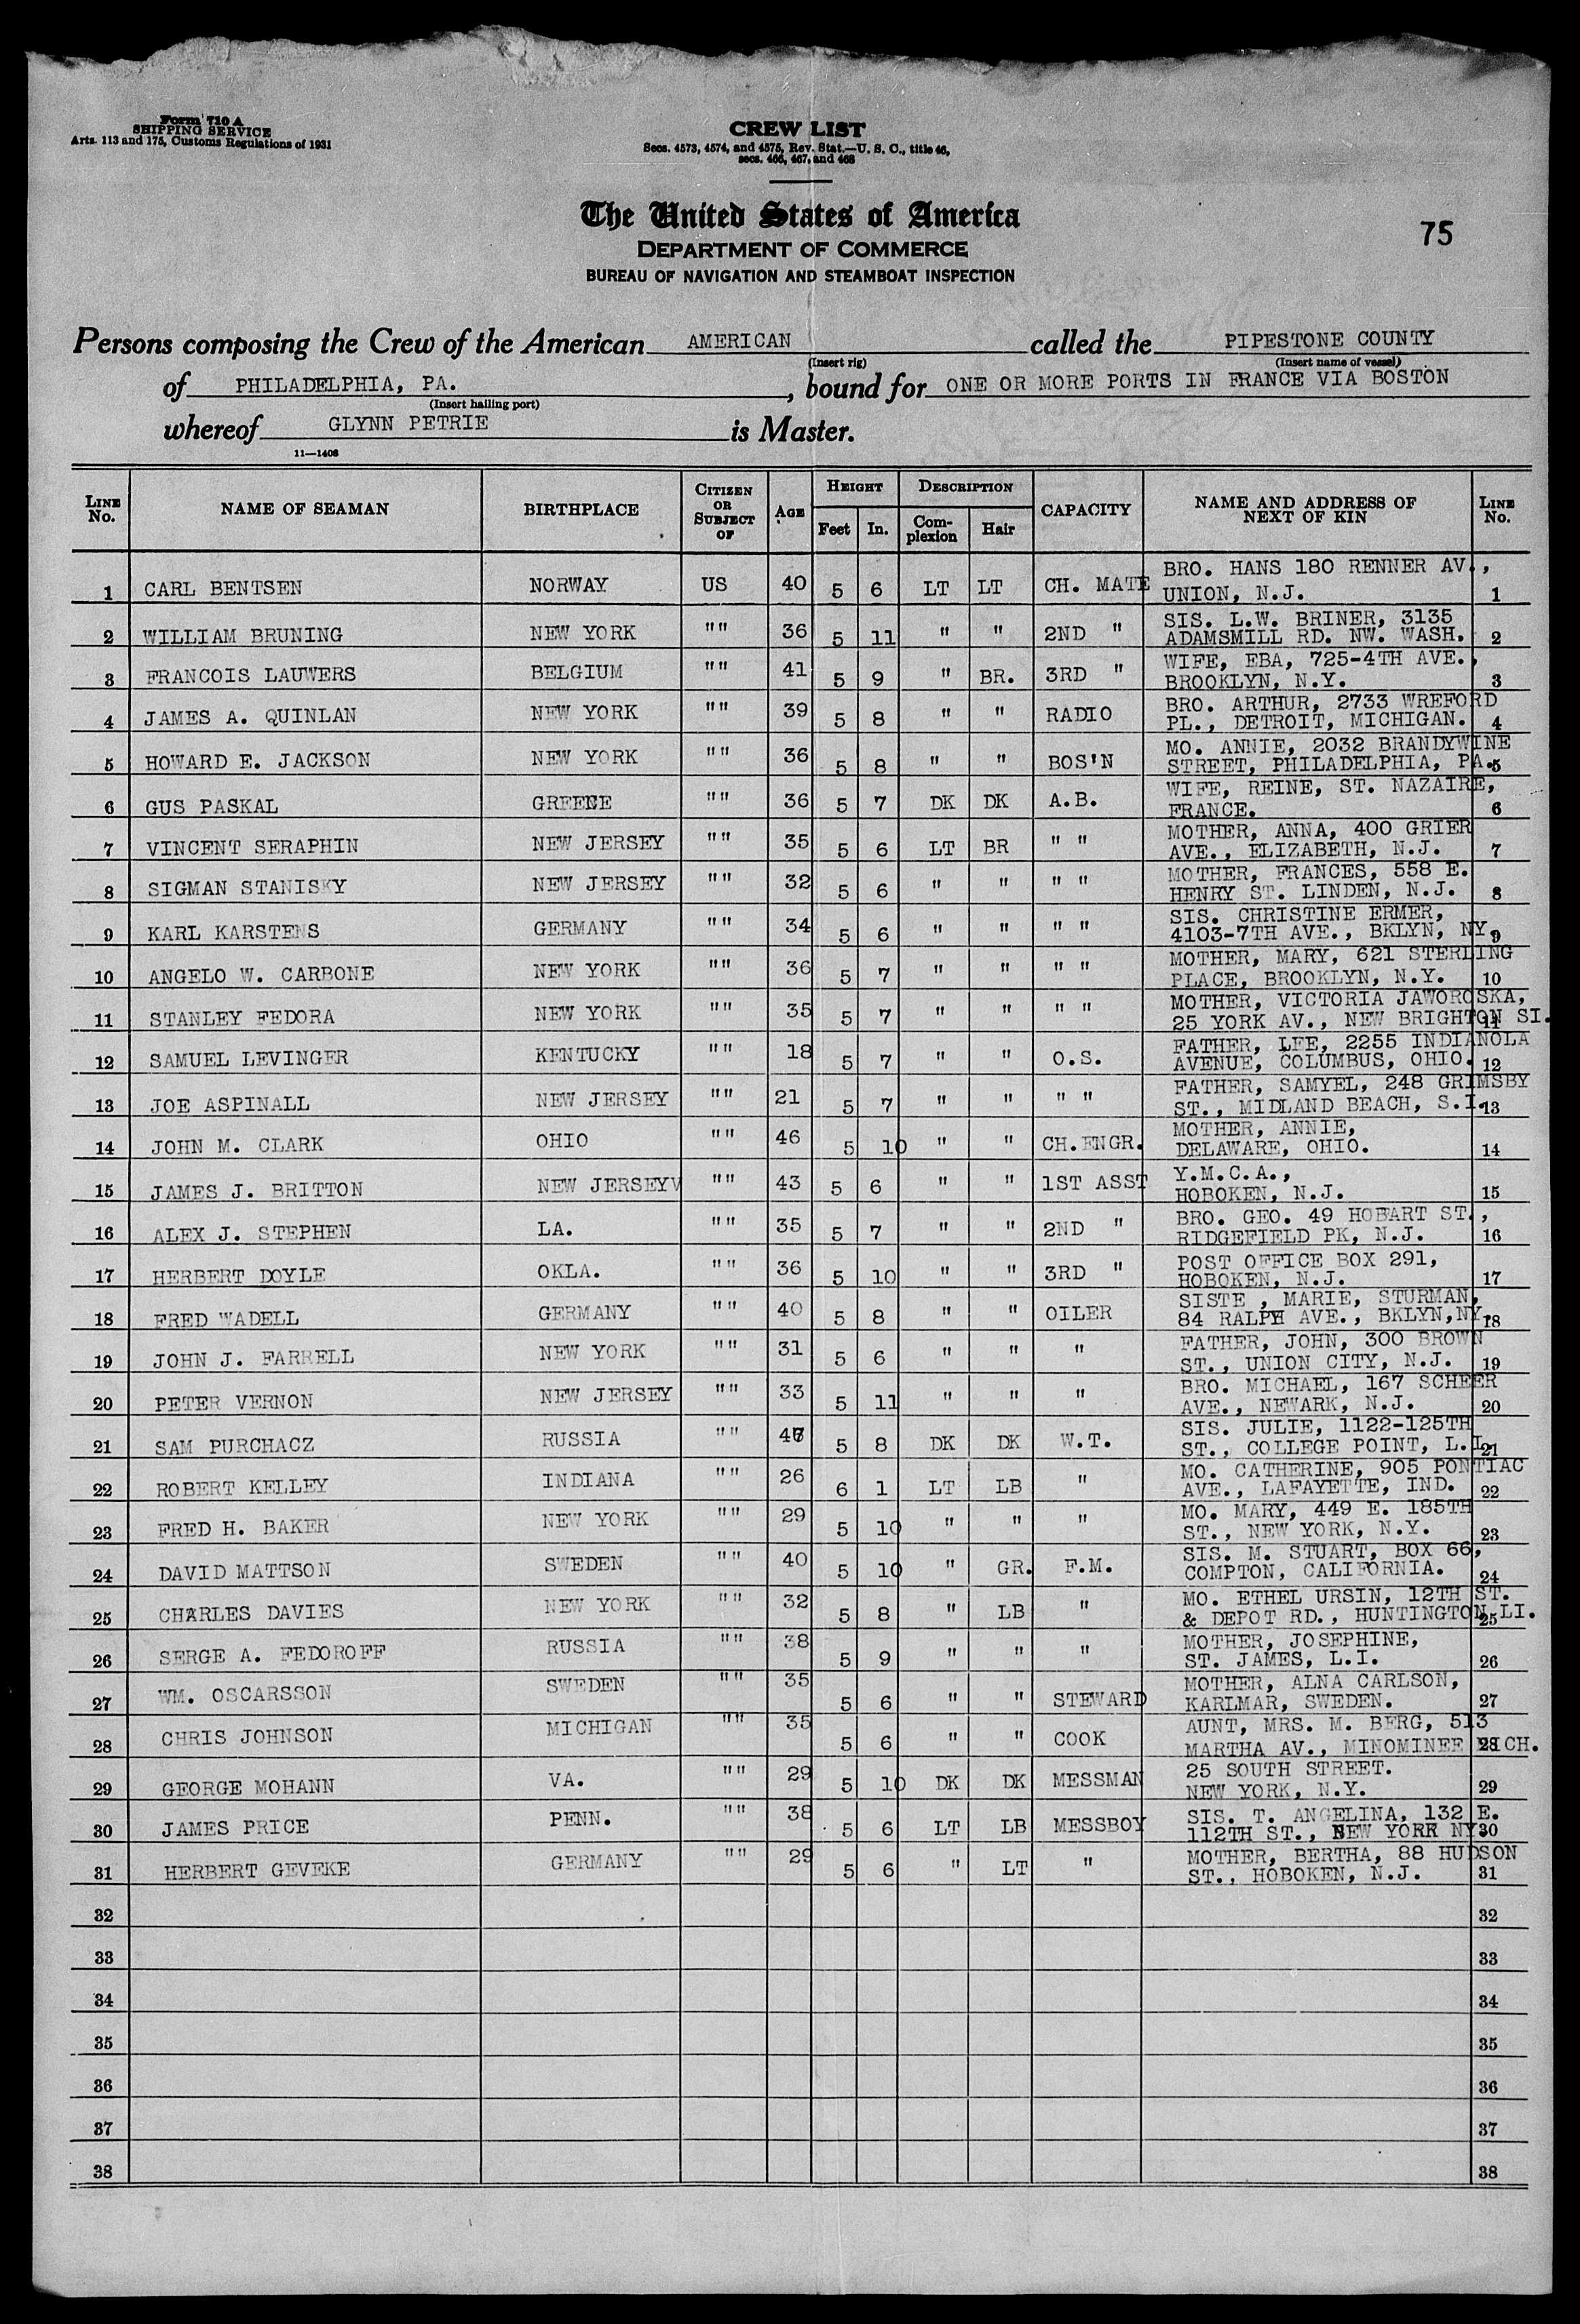 Form 710 A
SHIPPING SERVICE
Arts. 113 and 175, Customs Regulations of 1931
CREW LIST
Secs. 4573, 4574, and 4575, Rev. Stat.—U. S. C., title 46,
secs. 466, 467, and 468
The United States of America
DEPARTMENT OF COMMERCE
BUREAU OF NAVIGATION AND STEAMBOAT INSPECTION
75
Persons composing the Crew of the American AMERICAN called the PIPESTONE COUNTY
(Insert rig) (Insert name of vessel)
of PHILADELPHIA, PA. , bound for ONE OR MORE PORTS IN FRANCE VIA BOSTON
(Insert hailing port)
whereof GLYNN PETRIE is Master.
11—1408
LINE No. NAME OF SEAMAN BIRTHPLACE CITIZEN OR SUBJECT OF AGE HEIGHT Feet In. DESCRIPTION Complexion Hair CAPACITY NAME AND ADDRESS OF NEXT OF KIN LINE No.
1 CARL BENTSEN NORWAY US 40 5 6 LT LT CH. MATE BRO. HANS 180 RENNER AV., UNION, N.J. 1
2 WILLIAM BRUNING NEW YORK "" 36 5 11 " " 2ND " SIS. L.W. BRINER, 3135 ADAMSMILL RD. NW. WASH. 2
3 FRANCOIS LAUWERS BELGIUM "" 41 5 9 " BR. 3RD " WIFE, EBA, 725-4TH AVE., BROOKLYN, N.Y. 3
4 JAMES A. QUINLAN NEW YORK "" 39 5 8 " " RADIO BRO. ARTHUR, 2733 WREFORD PL., DETROIT, MICHIGAN. 4
5 HOWARD E. JACKSON NEW YORK "" 36 5 8 " " BOS'N MO. ANNIE, 2032 BRANDYWINE STREET, PHILADELPHIA, PA. 5
6 GUS PASKAL GREECE "" 36 5 7 DK DK A.B. WIFE, REINE, ST. NAZAIRE, FRANCE. 6
7 VINCENT SERAPHIN NEW JERSEY "" 35 5 6 LT BR " " MOTHER, ANNA, 400 GRIER AVE., ELIZABETH, N.J. 7
8 SIGMAN STANISKY NEW JERSEY "" 32 5 6 " " " " MOTHER, FRANCES, 558 E. HENRY ST. LINDEN, N.J. 8
9 KARL KARSTENS GERMANY "" 34 5 6 " " " " SIS. CHRISTINE ERMER, 4103-7TH AVE., BKLYN, NY. 9
10 ANGELO W. CARBONE NEW YORK "" 36 5 7 " " " " MOTHER, MARY, 621 STERLING PLACE, BROOKLYN, N.Y. 10
11 STANLEY FEDORA NEW YORK "" 35 5 7 " " " " MOTHER, VICTORIA JAWOROSKA, 25 YORK AV., NEW BRIGHTON SI. 11
12 SAMUEL LEVINGER KENTUCKY "" 18 5 7 " " O.S. FATHER, LEE, 2255 INDIANOLA AVENUE, COLUMBUS, OHIO. 12
13 JOE ASPINALL NEW JERSEY "" 21 5 7 " " " " FATHER, SAMYEL, 248 GRIMSBY ST., MIDLAND BEACH, S.I. 13
14 JOHN M. CLARK OHIO "" 46 5 10 " " CH.ENGR. MOTHER, ANNIE, DELAWARE, OHIO. 14
15 JAMES J. BRITTON NEW JERSEYV "" 43 5 6 " " 1ST ASST Y.M.C.A., HOBOKEN, N.J. 15
16 ALEX J. STEPHEN LA. "" 35 5 7 " " 2ND " BRO. GEO. 49 HOBART ST., RIDGEFIELD PK, N.J. 16
17 HERBERT DOYLE OKLA. "" 36 5 10 " " 3RD " POST OFFICE BOX 291, HOBOKEN, N.J. 17
18 FRED WADELL GERMANY "" 40 5 8 " " OILER SISTE , MARIE, STURMAN, 84 RALPH AVE., BKLYN,NY. 18
19 JOHN J. FARRELL NEW YORK "" 31 5 6 " " " FATHER, JOHN, 300 BROWN ST., UNION CITY, N.J. 19
20 PETER VERNON NEW JERSEY "" 33 5 11 " " " BRO. MICHAEL, 167 SCHEER AVE., NEWARK, N.J. 20
21 SAM PURCHACZ RUSSIA "" 5 8 DK DK W.T. SIS. JULIE, 1122-125TH ST., COLLEGE POINT, L.I. 21
22 ROBERT KELLEY INDIANA "" 26 6 1 LT LB " MO. CATHERINE, 905 PONTIAC AVE., LAFAYETTE, IND. 22
23 FRED H. BAKER NEW YORK "" 29 5 10 " " " MO. MARY, 449 E. 185TH ST., NEW YORK, N.Y. 23
24 DAVID MATTSON SWEDEN "" 40 5 10 " GR. F.M. SIS. M. STUART, BOX 66, COMPTON, CALIFORNIA. 24
25 CHARLES DAVIES NEW YORK "" 32 5 8 " LB " MO. ETHEL URSIN, 12TH ST. & DEPOT RD., HUNTINGTON LI. 25
26 SERGE A. FEDOROFF RUSSIA "" 38 5 9 " " " MOTHER, JOSEPHINE, ST. JAMES, L.I. 26
27 WM. OSCARSSON SWEDEN "" 35 5 6 " " STEWARD MOTHER, ALNA CARLSON, KARLMAR, SWEDEN. 27
28 CHRIS JOHNSON MICHIGAN "" 35 5 6 " " COOK AUNT, MRS. M. BERG, 513 MARTHA AV., MINOMINEE MICH. 28
29 GEORGE MOHANN VA. "" 29 5 10 DK DK MESSMAN 25 SOUTH STREET. NEW YORK, N.Y. 29
30 JAMES PRICE PENN. "" 38 5 6 LT LB MESSBOY SIS. T. ANGELINA, 132 E. 112TH ST., NEW YORK NY. 30
31 HERBERT GEVEKE GERMANY "" 29 5 6 " LT " MOTHER, BERTHA, 88 HUDSON ST., HOBOKEN, N.J. 31
32 32
33 33
34 34
35 35
36 36
37 37
38 38